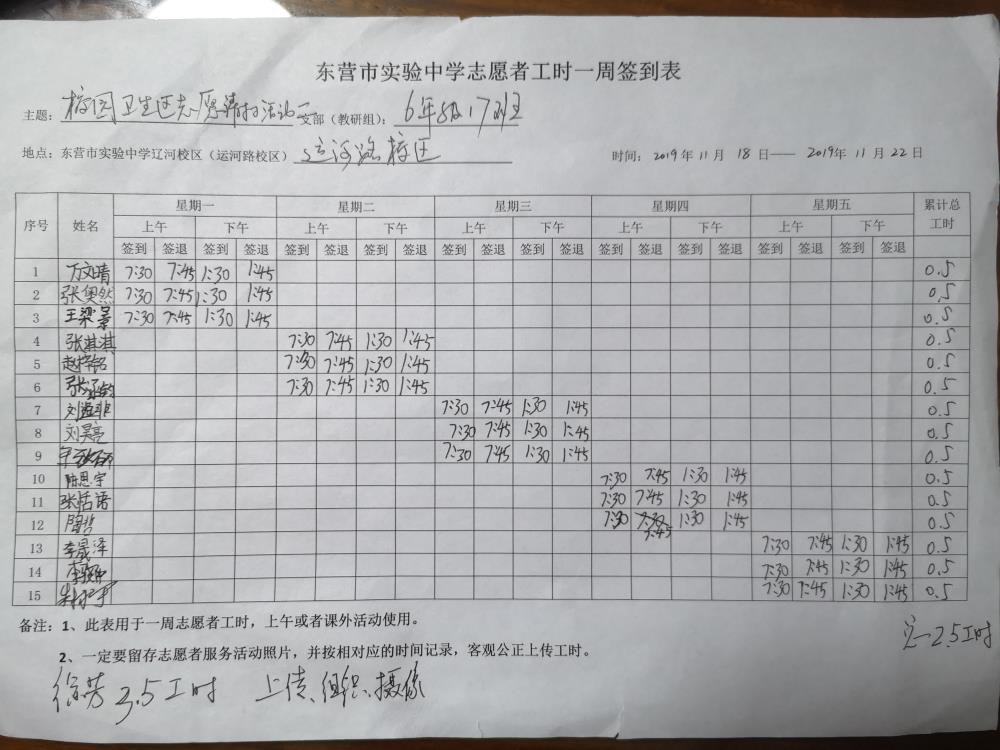 东营市实验中学志愿者工时一周签到表
主题: 校园卫生区志愿清扫活动 支部(教研组): 6年级17班
地点: 东营市实验中学辽河校区(运河路校区) 运河路校区 时间: 2019年 11月 18日—— 2019年 11月 22日
序号 姓名 星期一 星期二 星期三 星期四 星期五 累计总工时
上午 下午 上午 下午 上午 下午 上午 下午 上午 下午
签到 签退 签到 签退 签到 签退 签到 签退 签到 签退 签到 签退 签到 签退 签到 签退 签到 签退 签到 签退
1 万文晴 7:30 7:45 1:30 1:45 0.5
2 张奥然 7:30 7:45 1:30 1:45 0.5
3 王梁景 7:30 7:45 1:30 1:45 0.5
4 张淇淇 7:30 7:45 1:30 1:45 0.5
5 赵梓铭 7:30 7:45 1:30 1:45 0.5
6 张 7:30 7:45 1:30 1:45 0.5
7 刘孟非 7:30 7:45 1:30 1:45 0.5
8 刘昊亮 7:30 7:45 1:30 1:45 0.5
9 7:30 7:45 1:30 1:45 0.5
10 陆思宇 7:30 7:45 1:30 1:45 0.5
11 张恬语 7:30 7:45 1:30 1:45 0.5
12 7:30 7:45 1:30 1:45 0.5
13 李晟泽 7:30 7:45 1:30 1:45 0.5
14 李 7:30 7:45 1:30 1:45 0.5
15 7:30 7:45 1:30 1:45 0.5
备注: 1、此表用于一周志愿者工时，上午或者课外活动使用。
2.5工时
2、一定要留存志愿者服务活动照片，并按相对应的时间记录，客观公正上传工时。
徐芳 3.5工时 上传、组织、摄像